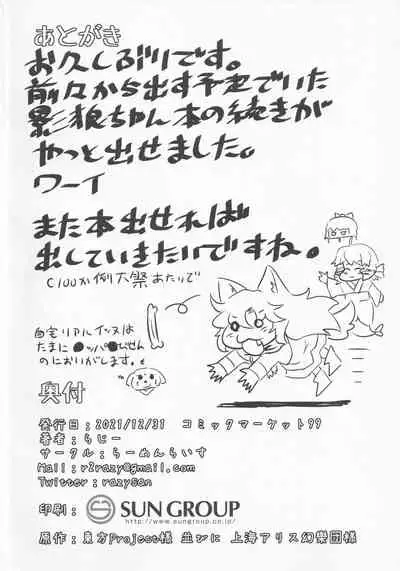 あとがき
お久しぶりです。
前々から出す予定でいた
影狼ちゃん本の続きが
やっと出せました。
ワーイ
また本出せれば
出していきたいですね。
C100か例大祭あたりで
自宅リアルインヌは
たまに●ッパ●びせん
のにおいがします。
奥付
発行日：2021/12/31　コミックマーケット99
著者：らじー
サークル：らーめんらいす
Mail：r2razy@gmail.com
Twitter：razysan
印刷：SUN GROUP
http://www.sungroup.co.jp/
原作：東方Project様 並びに 上海アリス幻樂団様